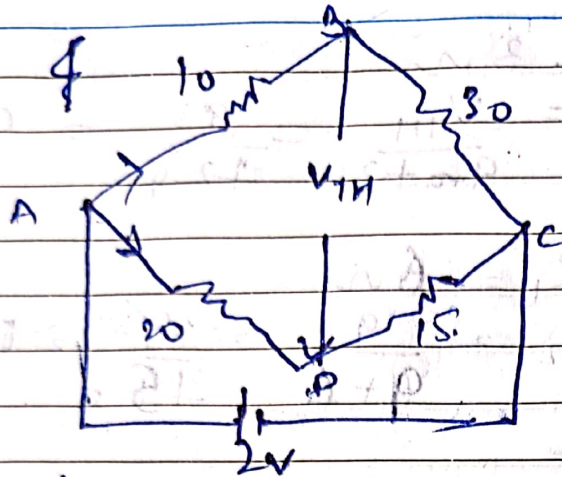 B
10
30
V TH
A
C
20
15
D
2V